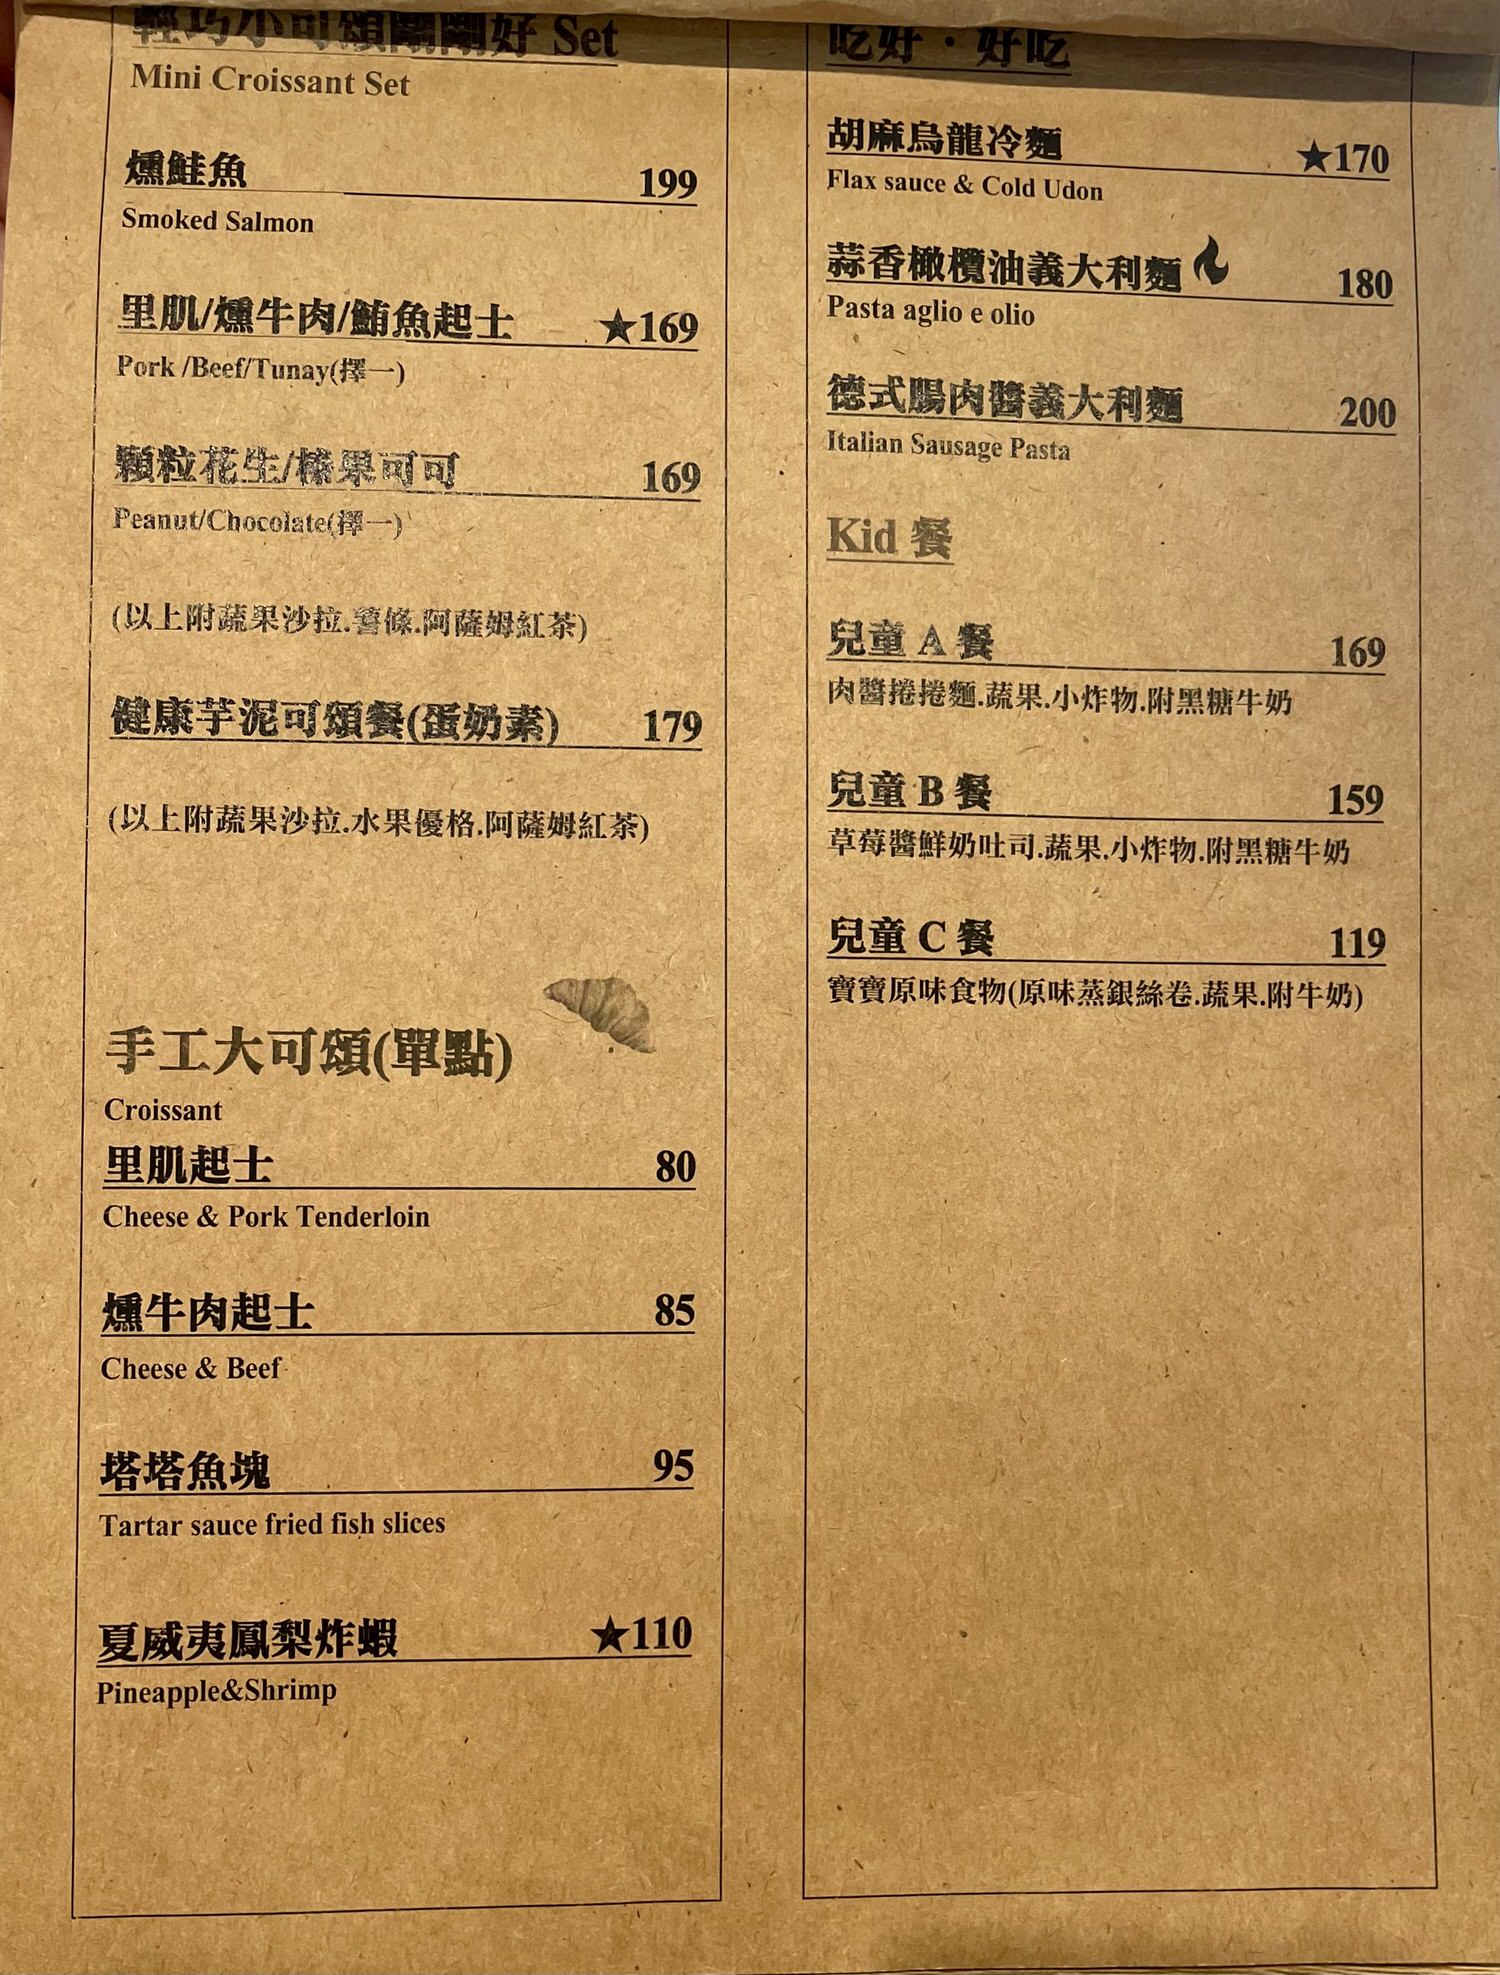 輕巧小可頌剛剛好 Set
Mini Croissant Set
燻鮭魚 199
Smoked Salmon
里肌/燻牛肉/鮪魚起士 ★169
Pork /Beef/Tunay(擇一)
顆粒花生/榛果可可 169
Peanut/Chocolate(擇一)
(以上附蔬果沙拉.薯條.阿薩姆紅茶)
健康芋泥可頌餐(蛋奶素) 179
(以上附蔬果沙拉.水果優格.阿薩姆紅茶)
手工大可頌(單點)
Croissant
里肌起士 80
Cheese & Pork Tenderloin
燻牛肉起士 85
Cheese & Beef
塔塔魚塊 95
Tartar sauce fried fish slices
夏威夷鳳梨炸蝦 ★110
Pineapple&Shrimp
吃好・好吃
胡麻烏龍冷麵 ★170
Flax sauce & Cold Udon
蒜香橄欖油義大利麵 180
Pasta aglio e olio
德式腸肉醬義大利麵 200
Italian Sausage Pasta
Kid 餐
兒童 A 餐 169
肉醬捲捲麵.蔬果.小炸物.附黑糖牛奶
兒童 B 餐 159
草莓醬鮮奶吐司.蔬果.小炸物.附黑糖牛奶
兒童 C 餐 119
寶寶原味食物(原味蒸銀絲卷.蔬果.附牛奶)